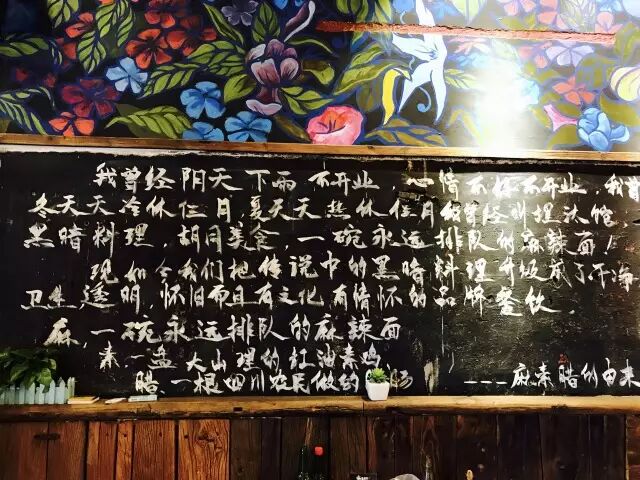 我曾经阴天下雨不开业，心情不好不开业，我曾
冬天天冷休仨月，夏天天热休仨月
黑暗料理，胡同美食，一碗永远排队的麻辣面！
现如今我们把传说中的黑暗料理升级成了干净
卫生，透明，怀旧而且有文化有情怀的品牌餐饮．
麻，一碗永远排队的麻辣面
素一盘大山理的红油素鸡
腊．一根四川农民做的 肠
---麻素腊的由来